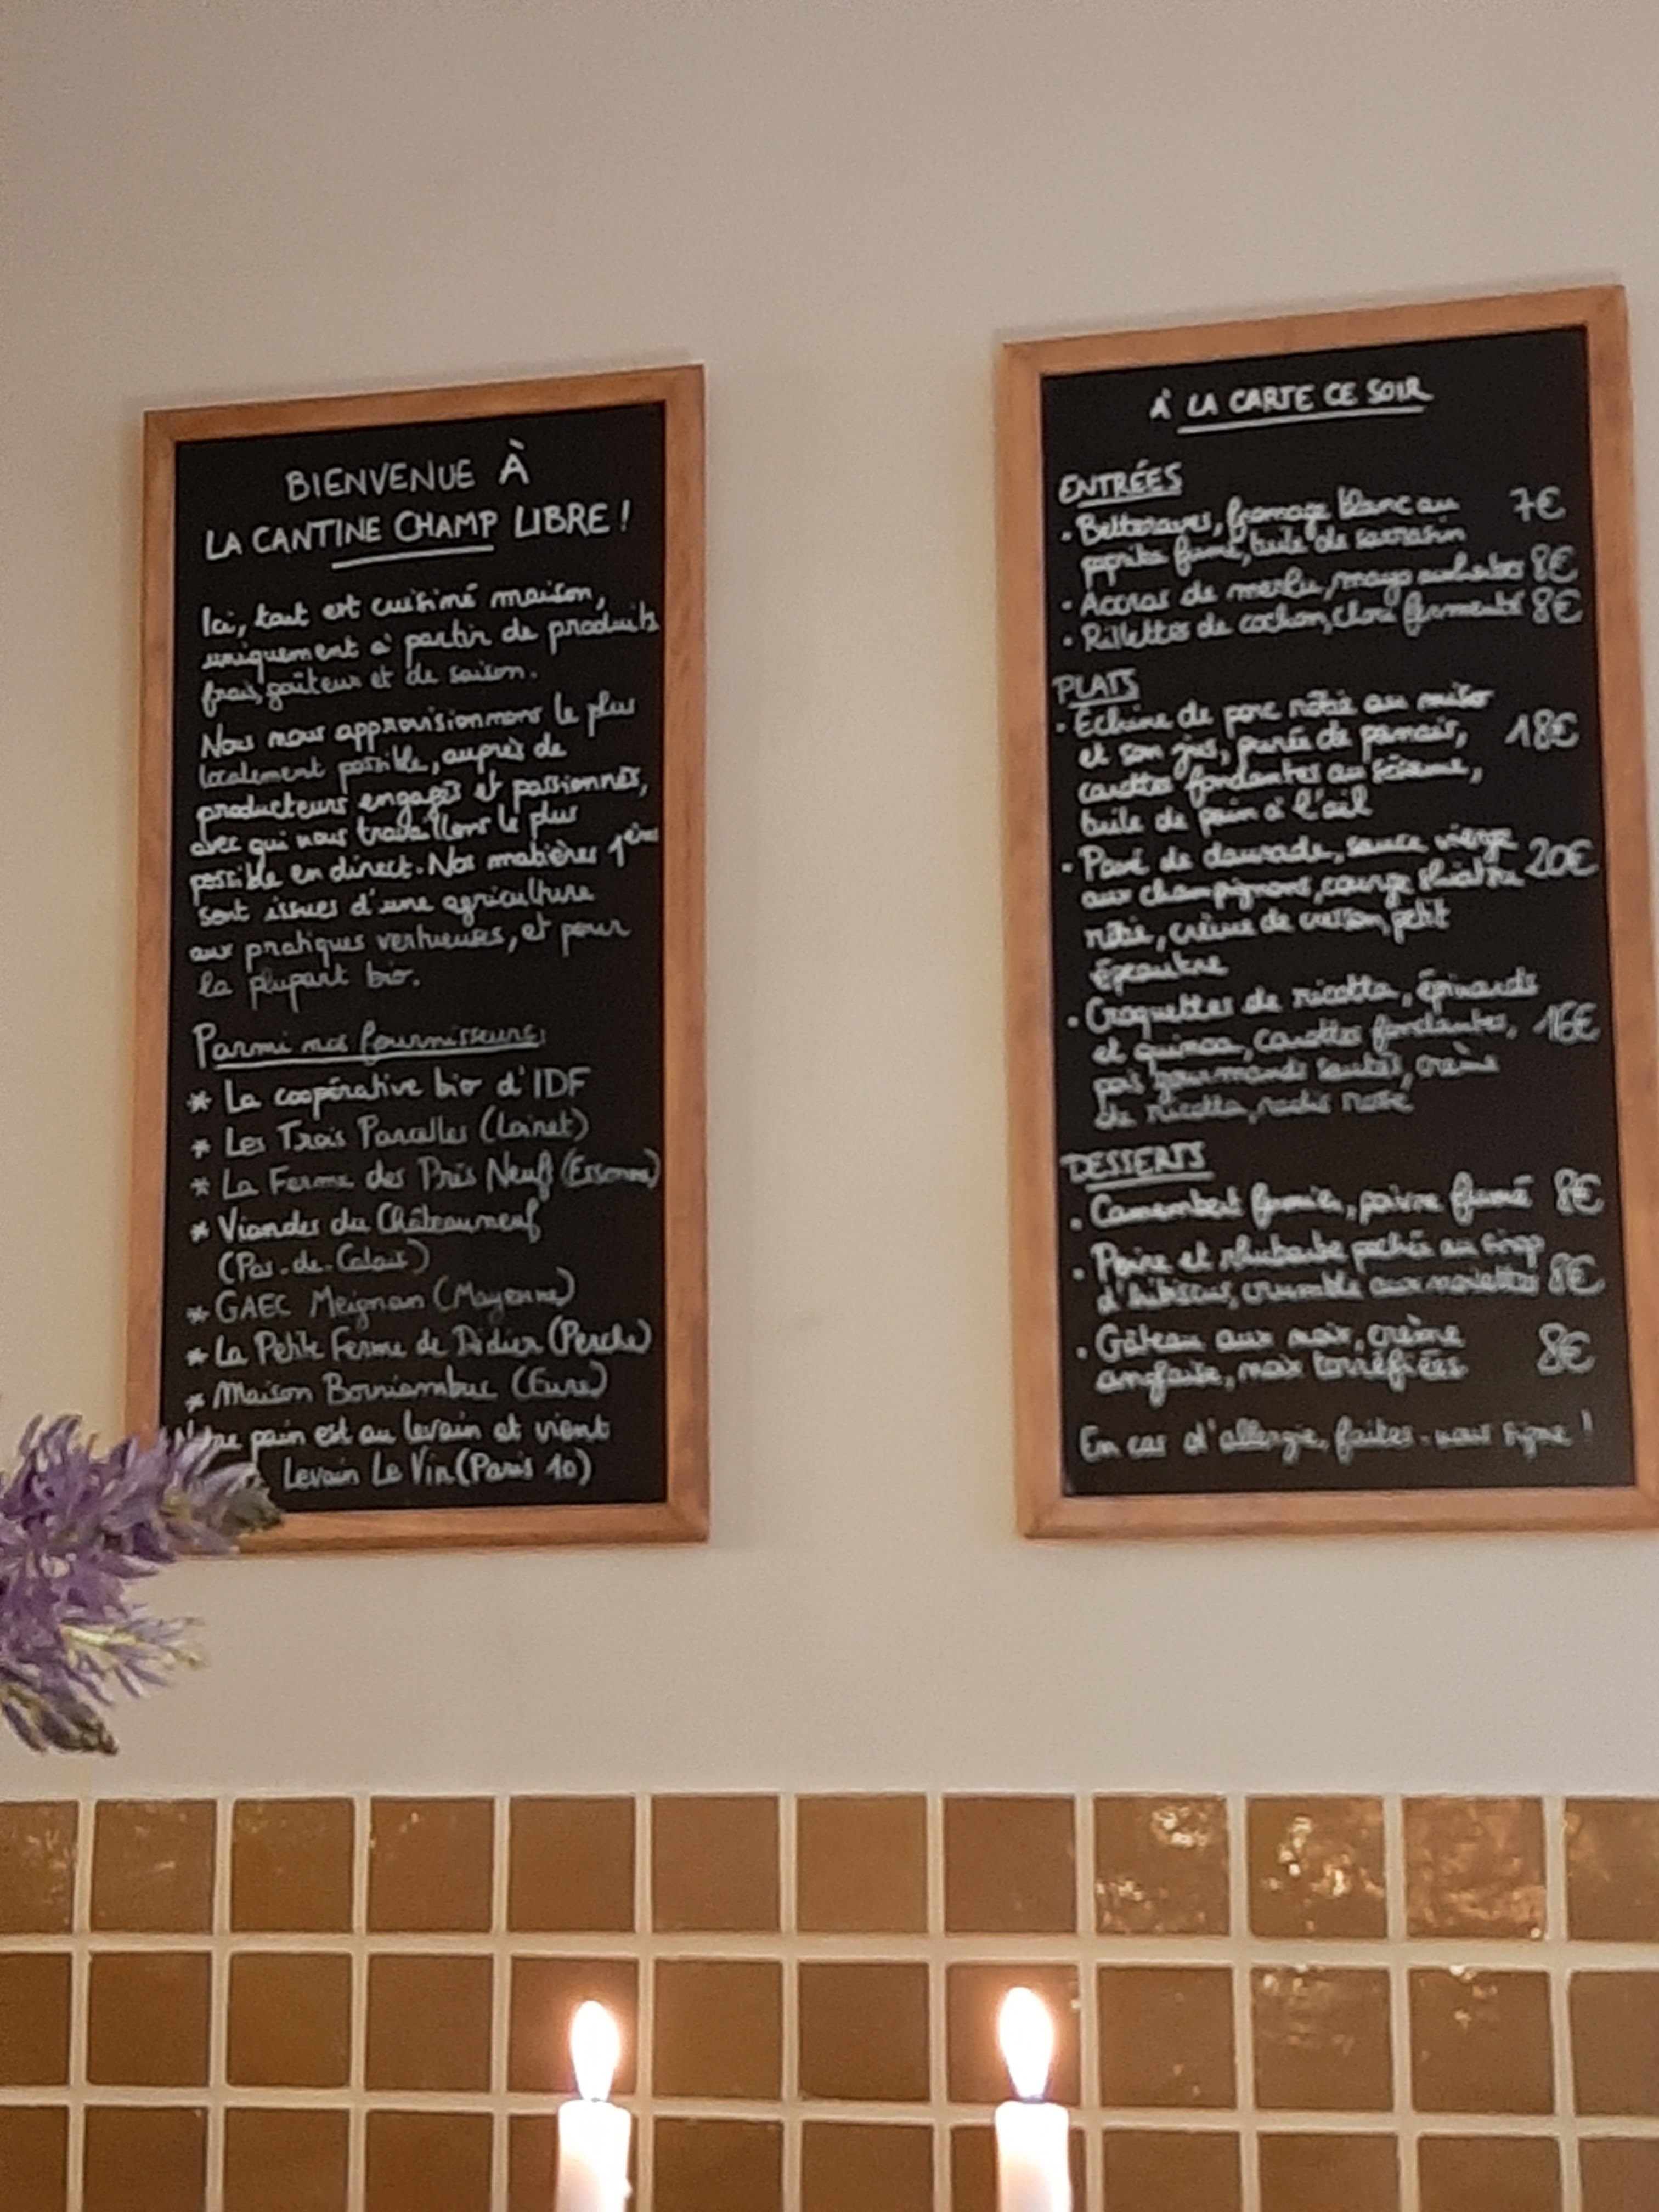 BIENVENUE À
LA CANTINE CHAMP LIBRE !
Ici, tout est cuisiné maison,
uniquement à partir de produits
frais, goûteux et de saison.
Nous nous approvisionnons le plus
localement possible, auprès de
producteurs engagés et passionnés,
avec qui nous travaillons le plus
possible en direct. Nos matières 1ères
sont issues d'une agriculture
aux pratiques vertueuses, et pour
la plupart bio.
Parmi nos fournisseurs:
* La coopérative bio d'IDF
* Les Trois Parcelles (Loiret)
* La Ferme des Prés Neuf (Essonne)
* Viandes du Châteauneuf
(Pas-de-Calais)
* GAEC Meignan (Mayenne)
* La Petite Ferme de Didier (Perche)
* Maison Borniambuc (Eure)
Notre pain est au levain et vient
Levain Le Vin (Paris 10)
À LA CARTE CE SOIR
ENTRÉES
• Betteraves, fromage blanc au 7€
paprika fumé, tuile de sarrasin
• Accras de merlu, mayo 8€
• Rillettes de cochon, chou fermenté 8€
PLATS
• Échine de porc rôtie au miso
et son jus, purée de panais, 18€
carottes fondantes au sésame,
tuile de pain à l'ail
• Pavé de daurade, sauce vierge 20€
aux champignons, courge
rôtie, crème de cresson, petit
épeautre
• Croquettes de ricotta, épinards
et quinoa, carottes fondantes, 16€
pois gourmands sautés, crème
de ricotta, radis rose
DESSERTS
• Camembert fermier, poivre fumé 8€
• Poire et rhubarbe pochées au sirop
d'hibiscus, crumble aux noisettes 8€
• Gâteau aux noix, crème 8€
anglaise, noix torréfiées
En cas d'allergie, faites-nous signe !